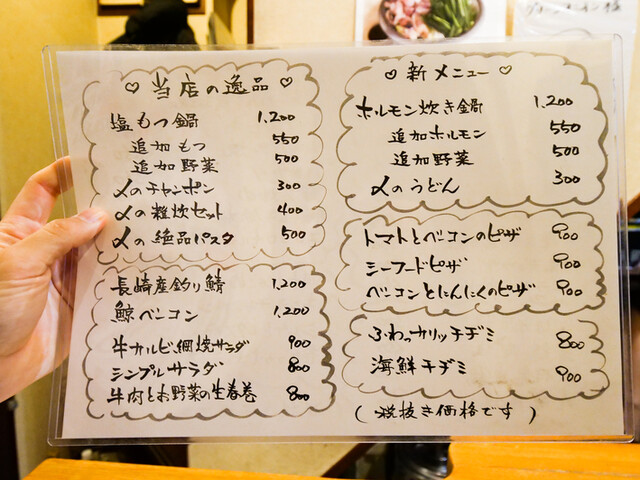 ♡ 当店の逸品 ♡
塩もつ鍋 1,200
追加もつ 550
追加野菜 500
〆のチャンポン 300
〆の雑炊セット 400
〆の絶品パスタ 500
長崎産釣り鯖 1,200
鯨ベーコン 1,200
牛カルビ網焼サラダ 900
シンプルサラダ 800
牛肉とお野菜の生春巻 800
♡ 新メニュー ♡
ホルモン炊き鍋 1,200
追加ホルモン 550
追加野菜 500
〆のうどん 300
トマトとベーコンのピザ 900
シーフードピザ 900
ベーコンとにんにくのピザ 900
ふわっカリッチヂミ 800
海鮮チヂミ 900
(税抜き価格です)